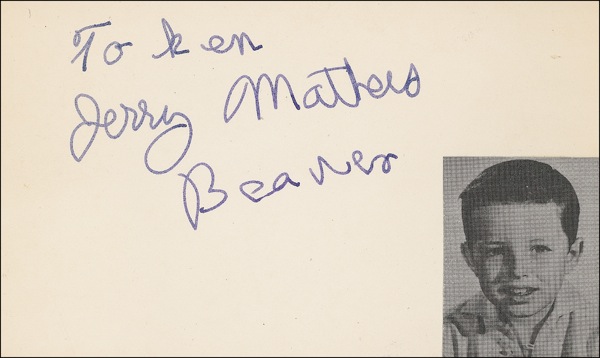 To Ken
Jerry Mathers
Beaver